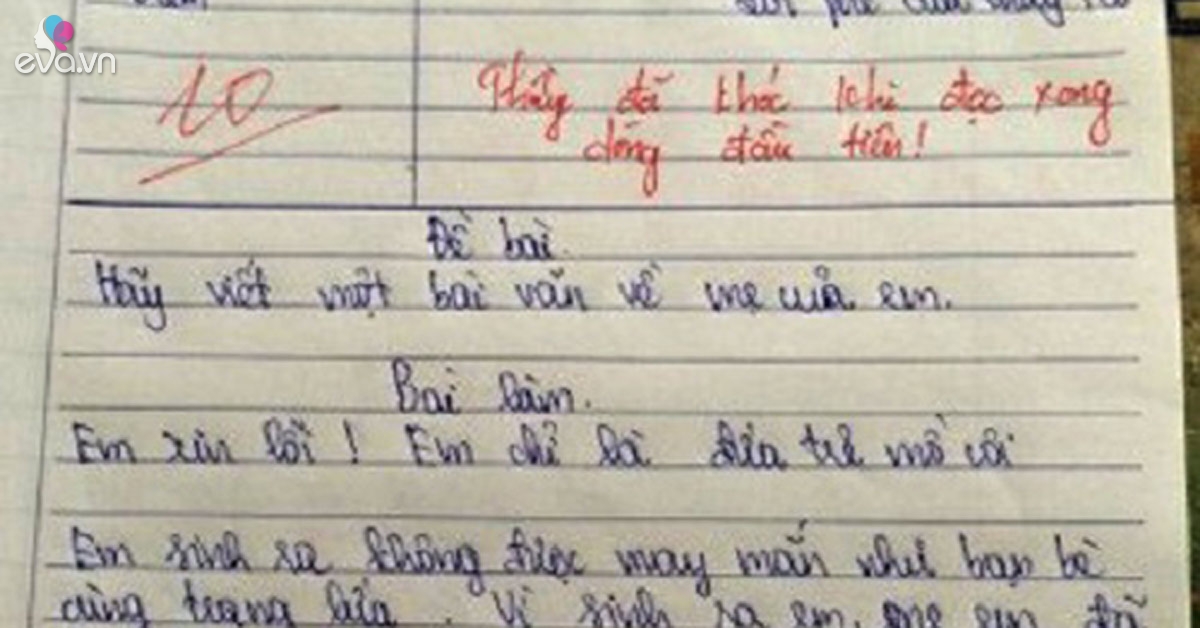 eva.vn
10
Thầy đã khóc khi đọc xong
dòng đầu tiên!
Đề bài.
Hãy viết một bài văn về mẹ của em.
Bài làm.
Em xin lỗi! Em chỉ là đứa trẻ mồ côi
Em sinh ra không được may mắn như bạn bè
cùng trang lứa. Vì sinh ra em, mẹ em đã